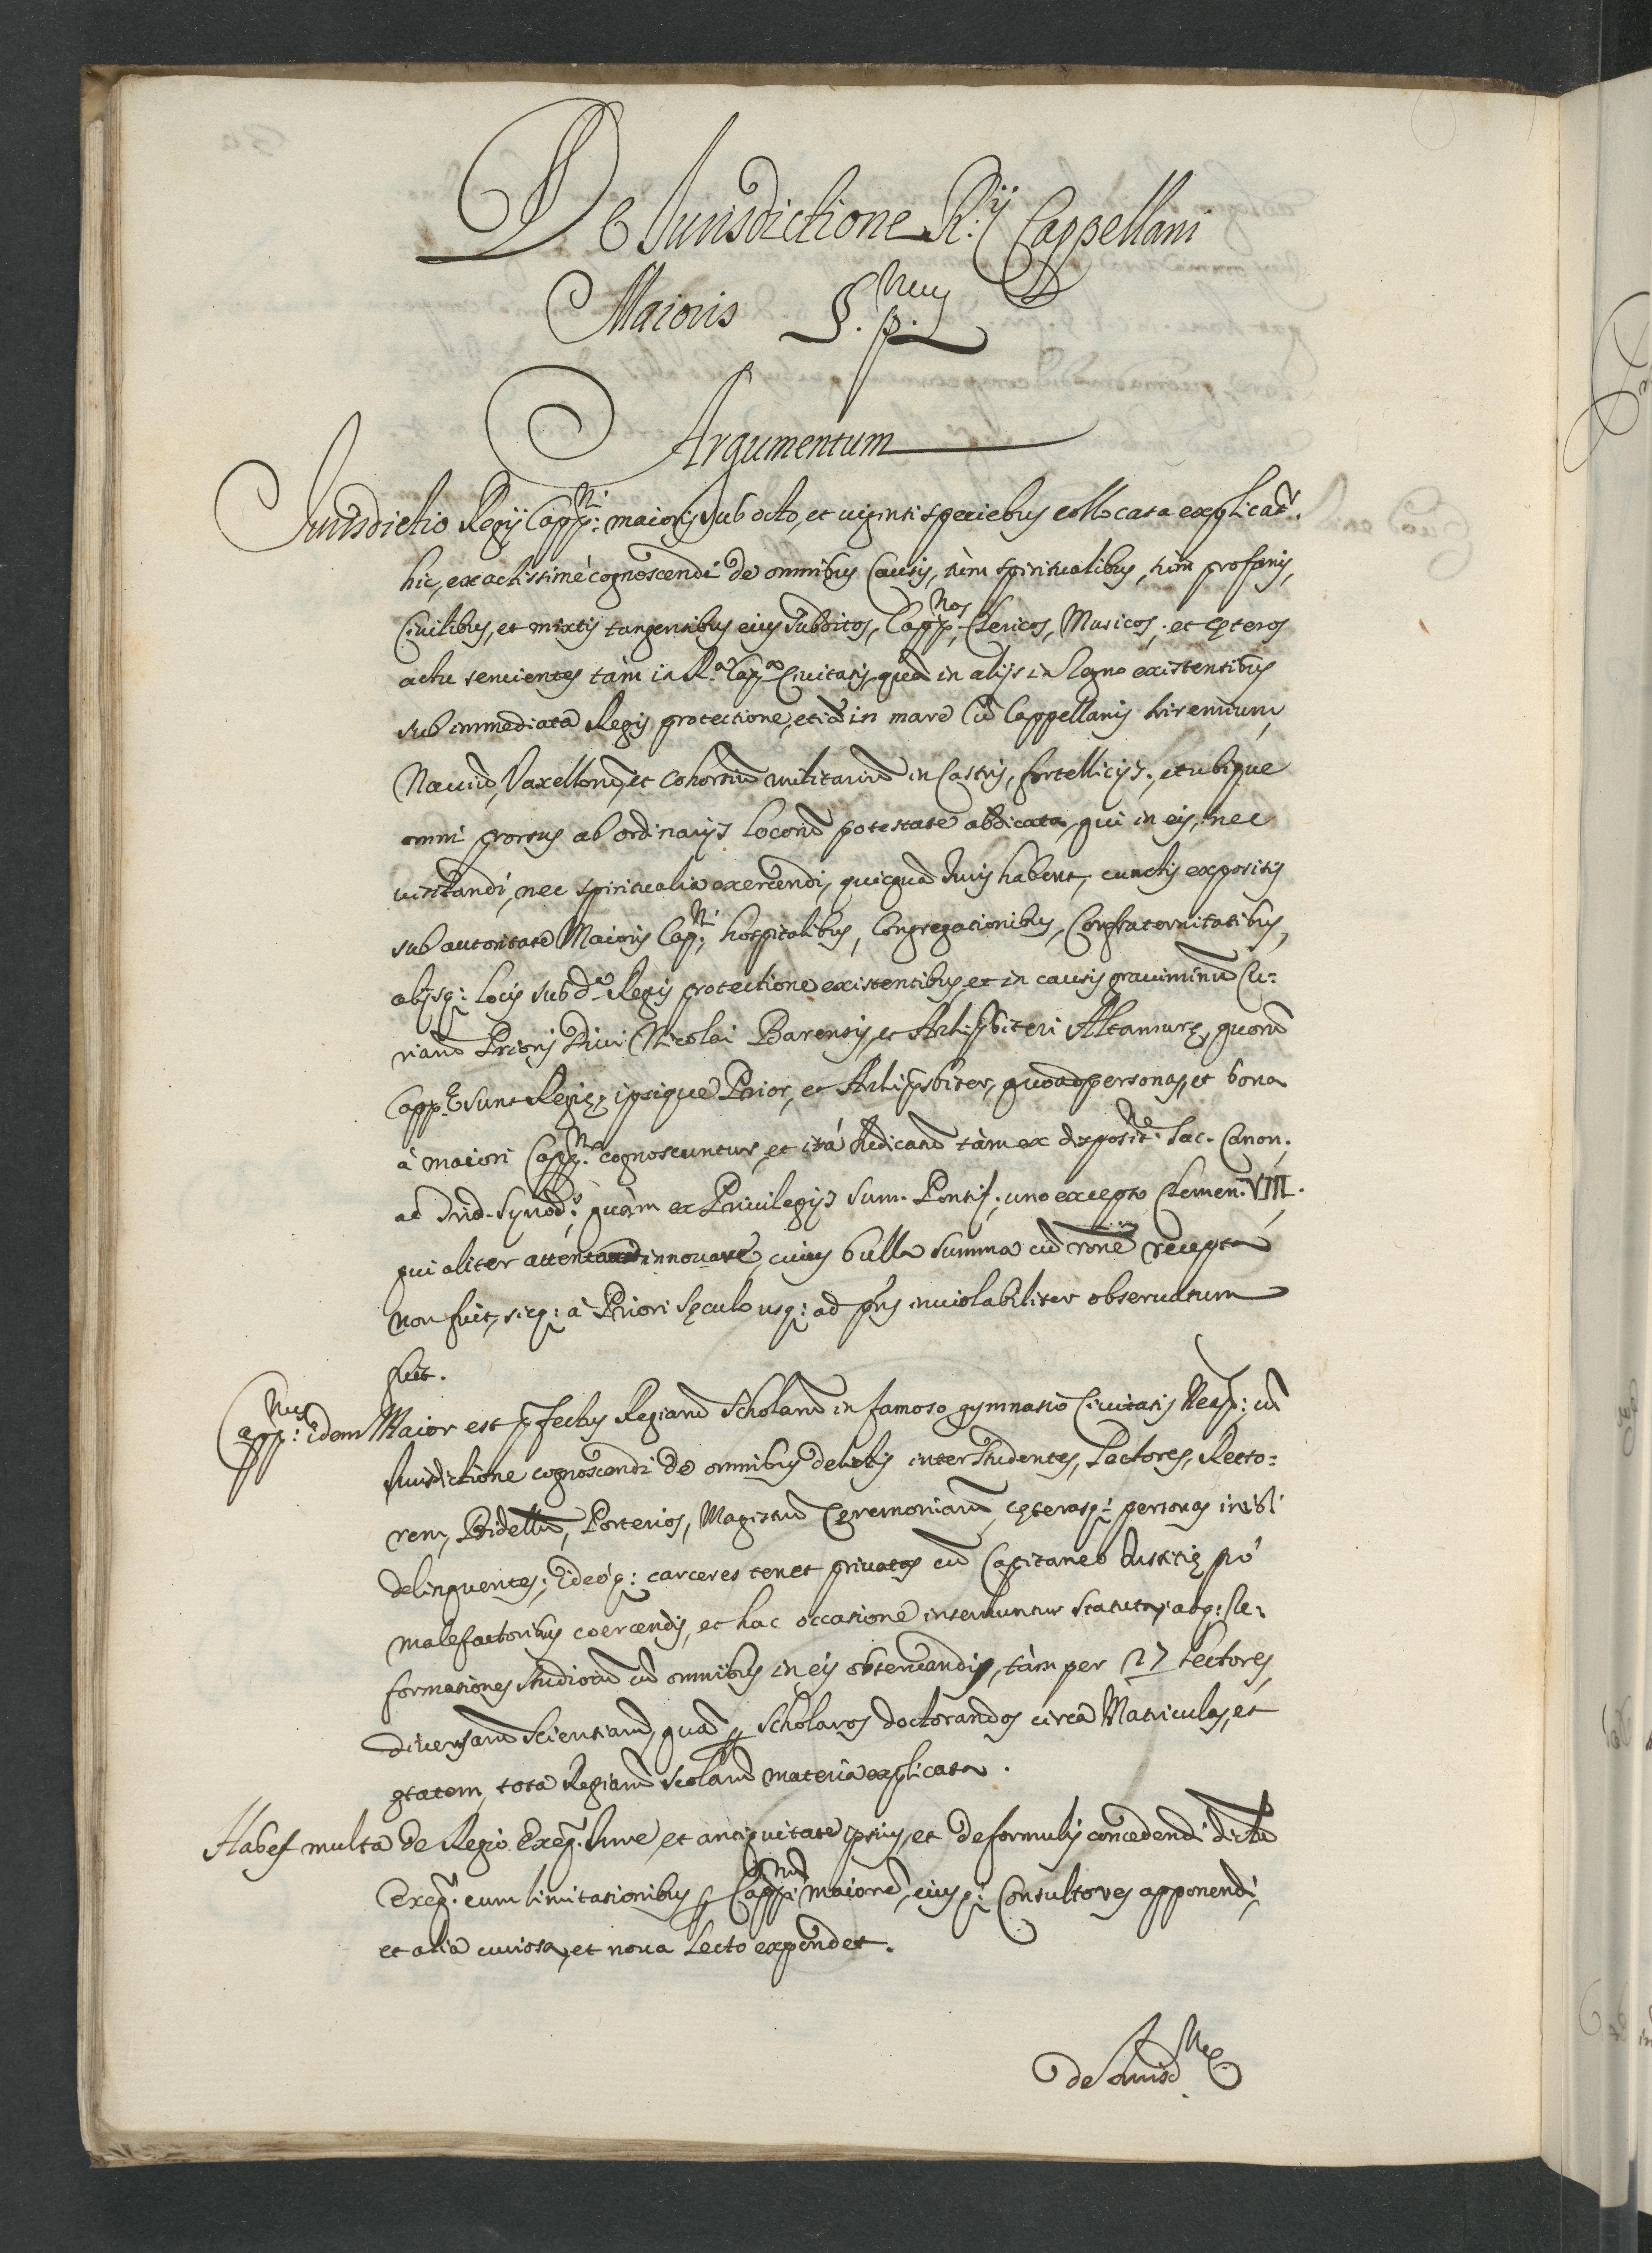 De Jurisdictione R.ij Cappellani
Maioris §. p.mus
Argumentum
Jurisdictio Regij Capp:ni maioris sub octo, et uiginti speciebus collocata explicat.r
hic, exactissimè cognoscendi de omnibus Causis, tùm spiritualibus, tùm profanis,
Ciuilibus, et mixtis tangentibus eius subditos, Capp.nos Clericos, Musicos, et cęteros
actu seruientes tàm in R.a Cap.a Ciuitatis, quã in alijs in Regno existentibus
sub immediata Regis protectione, etiã in mare cũ Cappellanis triremium,
Nauiũ, Vaxellorũ, et cohortiũ militariũ in Castris, fortellicijs, et ubique
omni prorsus ab ordinarijs locorũ potestate abdicata, qui in eis, nec
uisitandi, nec spiritualia exercendi, quicquã Juris habent, cunctis expositis
sub autoritate Maioris Cap:ni hospitalibus, Congregationibus, Confraternitatibus,
alijsq: locis sub d.a Regis protectione existentibus, et in causis grauiminũ Cu=
riarũ Prioris Diui Nicolai Barensis, et Archipsbiteri Altamurę, quorũ
Capp.e sunt Regię, ipsique Prior, et Archipsbiter, quoad personas, et bona
à maiori Capp.no cognoscuntur, et ità Judicatũ tàm ex disposit.ne Sac. Canon.
ac Trid. Synod.s, quàm ex Priuilegijs Sum. Pontif., uno excepto Clemen. VIII.
qui aliter innouare, cuius bulla summa cũ rone recepta
non fuit, sicq: à Priori sęculo usq: ad pñs inuiolabiliter obseruatum
fuit.
Capp:nus idem Maior est pfectus Regiarũ Scholarũ in famoso gymnasio Ciuitatis Neap: cũ
Jurisdictione cognoscendi de omnibus delictis inter studentes, Lectores, Recto=
rem, Bidellũ, Porterios, Magistrũ Cęremoniarũ, cęterasq: personas inibi
delinquentes; ideòq: carceres tenet priuatos cũ Capitaneo Justitię prò
malefactoribus coercendis, et hac occasione inseruntur statuta, atq: Re=
formationes studiorũ cũ omnibus in eis obseruandis, tàm per 27 lectores,
diuersarũ scientiarũ, quã p scholares doctorandos circa Matriculas, et
ętatem, tota Regiarũ scolarũ materia explicata.
Habes multa de Regio Exeq.r Jure, et antiquitate ipsius, et de formulis concedendi dictũ
Exeq.r cum limitationibus p Capp:num maiorẽ, eiusq: Consultores apponendi,
et alia curiosa, et noua lecto expendet.
de Jurisd.ne